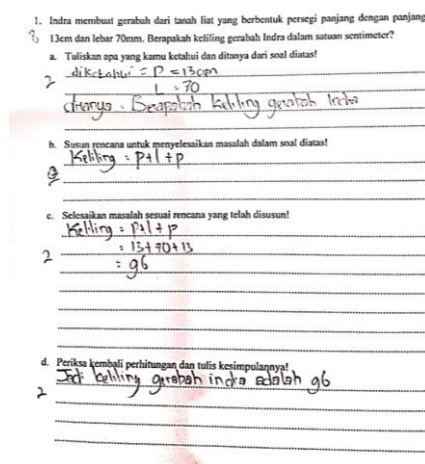 1. Indra membuat gerabah dari tanah liat yang berbentuk persegi panjang dengan panjang
13cm dan lebar 70mm. Berapakah keliling gerabah Indra dalam satuan sentimeter?
a. Tuliskan apa yang kamu ketahui dan ditanya dari soal diatas!
diketahui = P = 13cm
2
L = 70
ditanya . Beapakah keliling gerabah Indra
b. Susun rencana untuk menyelesaikan masalah dalam soal diatas!
Keliling = p+l+p
2
c. Selesaikan masalah sesuai rencana yang telah disusun!
Keliling = p+l+p
= 13+70+13
2
= 96
d. Periksa kembali perhitungan dan tulis kesimpulannya!
Jadi keliling gerabah indra adalah 96
2